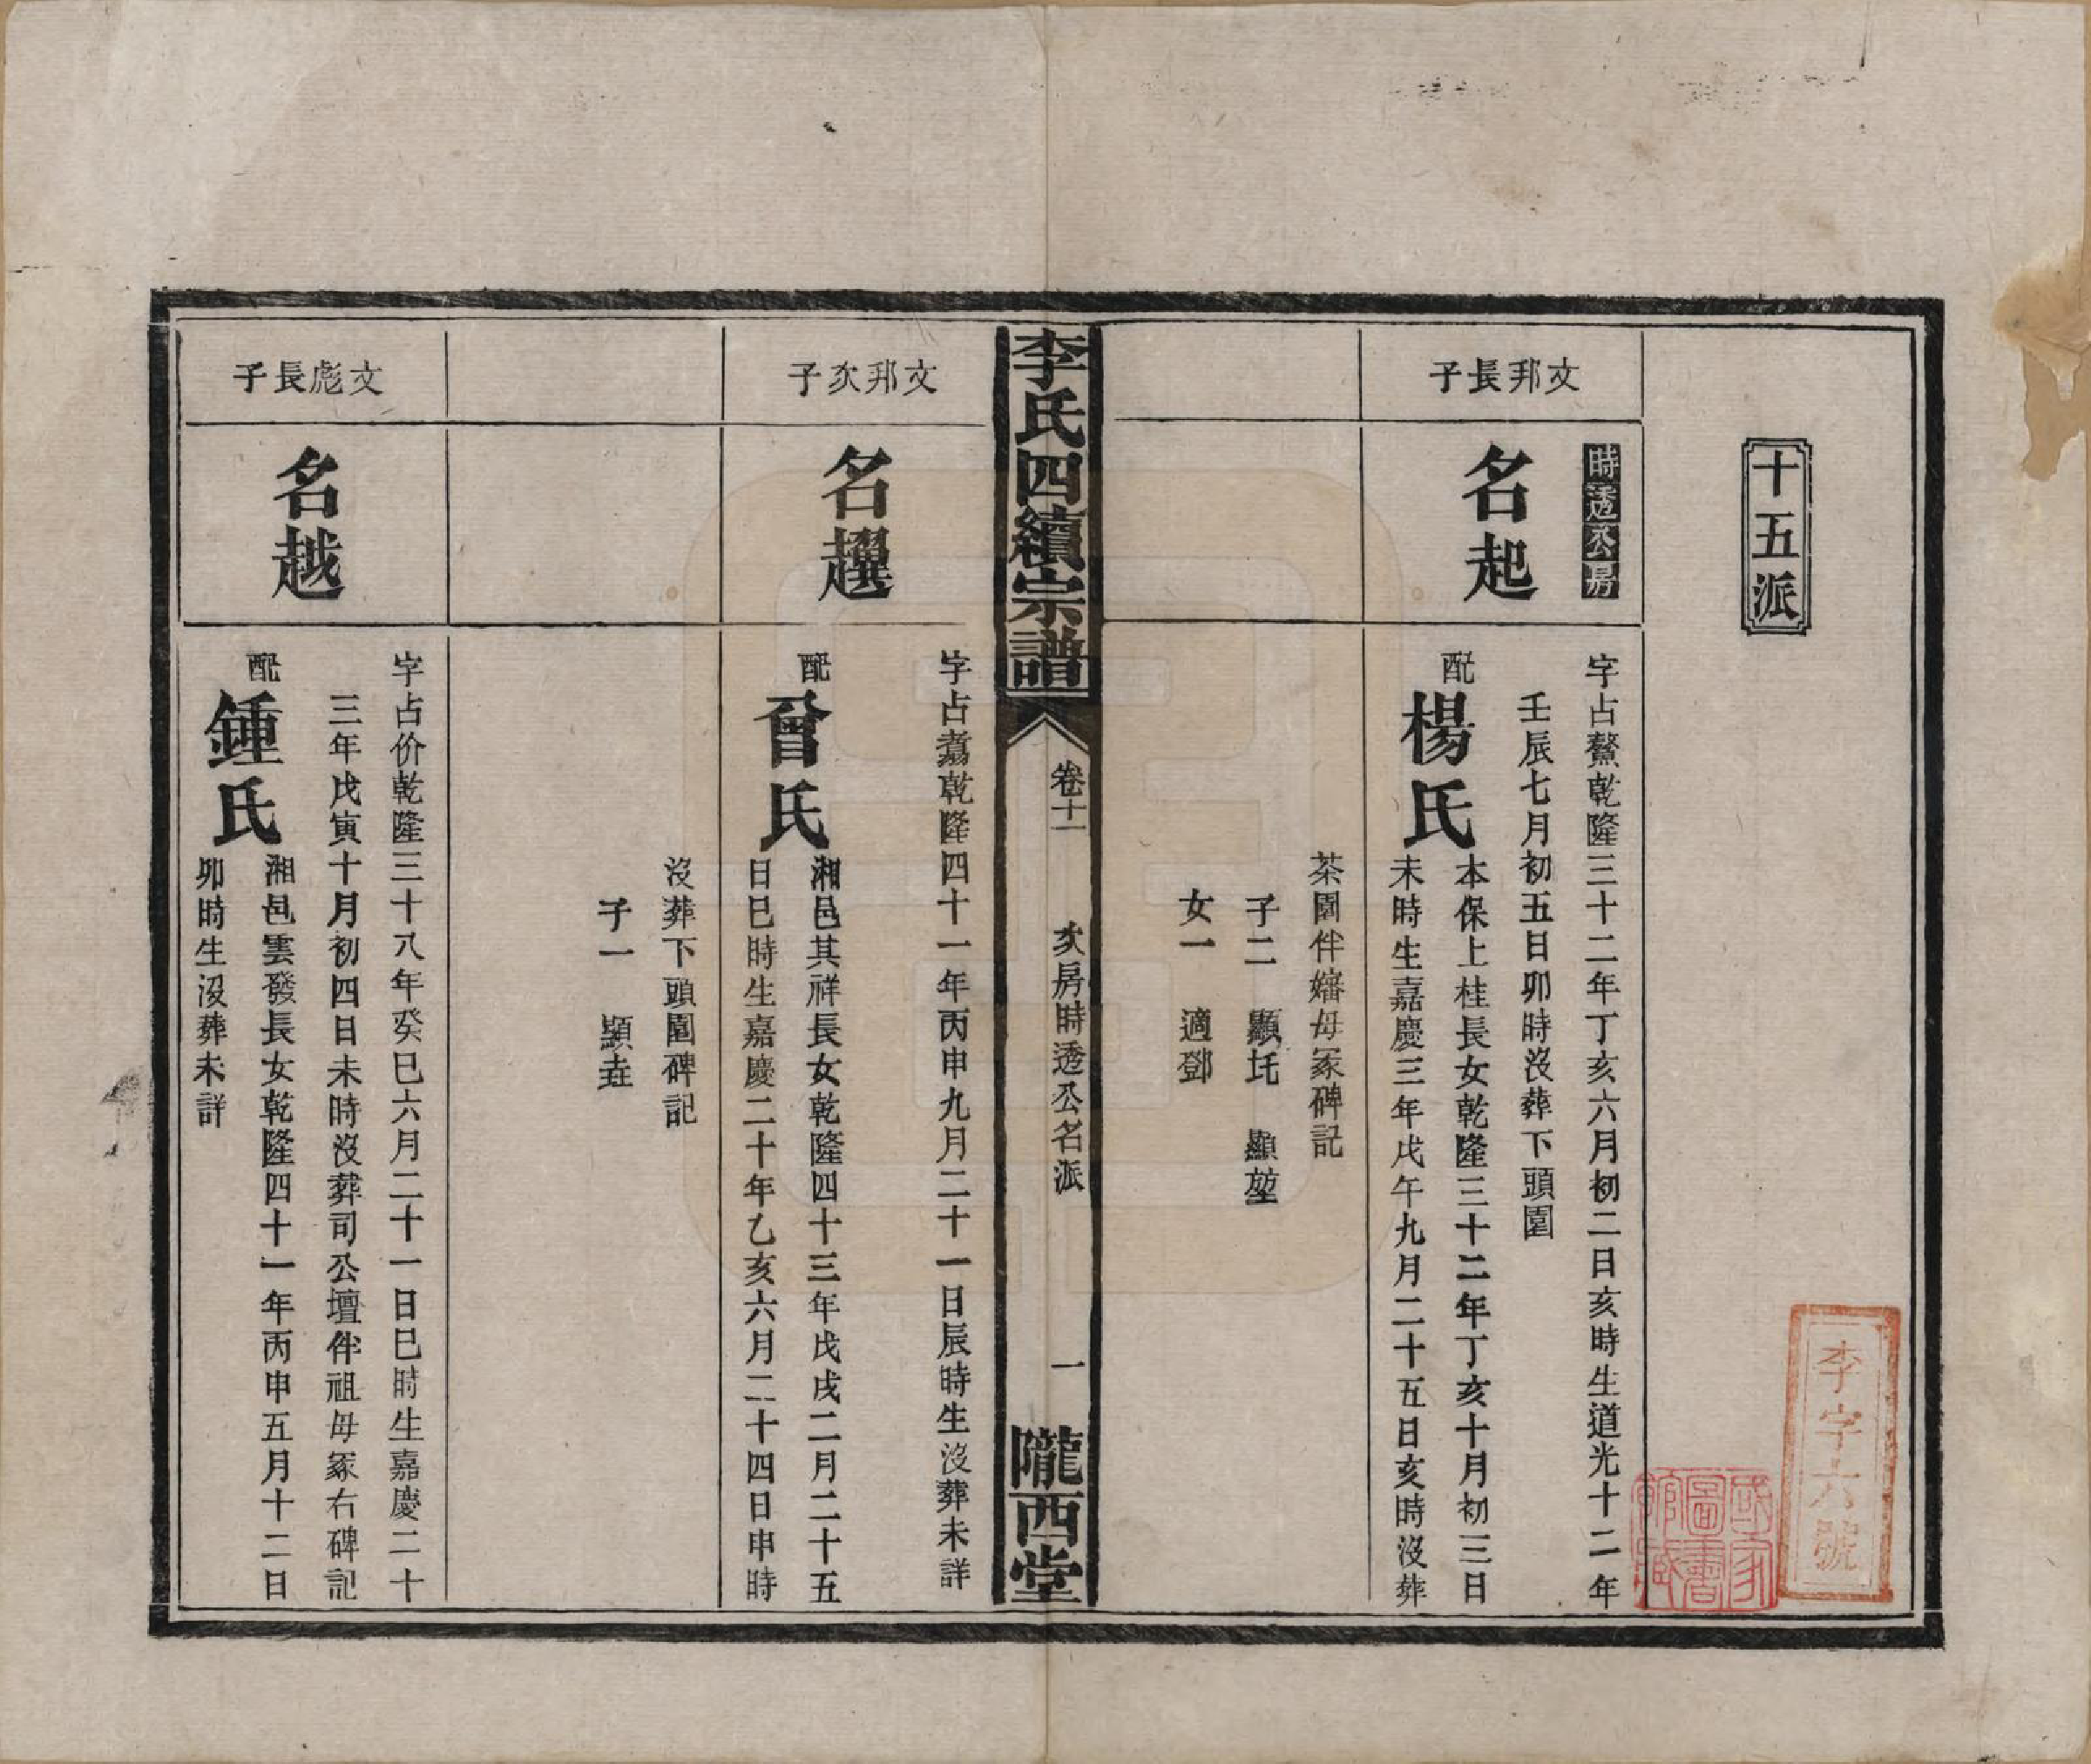 十五派
李字六號
國家圖書館藏
文邦長子
時透公房
名起
字占鰲乾隆三十二年丁亥六月初二日亥時生道光十二年
壬辰七月初五日卯時沒葬下頭園
配楊氏
本保上桂長女乾隆三十二年丁亥十月初三日
未時生嘉慶三年戊午九月二十五日亥時沒葬
茶園伴嬸母冢碑記
子二 顯圫 顯堃
女一 適鄧
李氏四續宗譜
卷十一
次房時透公名派
一
隴西堂
文邦次子
名趯
字占翥乾隆四十一年丙申九月二十一日辰時生沒葬未詳
配曾氏
湘邑其祥長女乾隆四十三年戊戌二月二十五
日巳時生嘉慶二十年乙亥六月二十四日申時
沒葬下頭園碑記
子一 顯垚
文彪長子
名越
字占价乾隆三十八年癸巳六月二十一日巳時生嘉慶二十
三年戊寅十月初四日未時沒葬司公壇伴祖母冢右碑記
配鍾氏
湘邑雲發長女乾隆四十一年丙申五月十二日
卯時生沒葬未詳